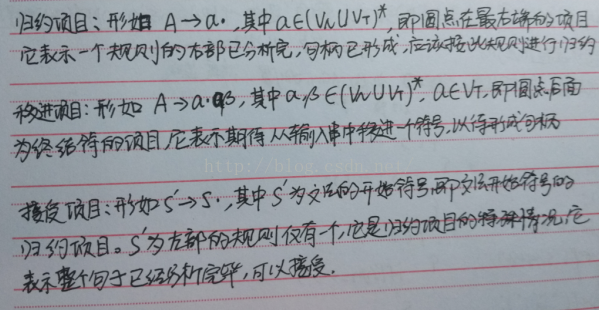 归约项目：形如 A→α·，其中α∈(VN∪VT)*，即圆点在最右端的项目
它表示一个规则的右部已分析完，句柄已形成，应该按此规则进行归约
移进项目：形如 A→α·aβ，其中α,β∈(VN∪VT)*，a∈VT，即圆点后面
为终结符的项目，它表示期待从输入串中移进一个符号，以待形成句柄
http://blog.csdn.net/
接受项目：形如S'→S·，其中S'为文法的开始符号，即文法开始符号的
归约项目。S'为左部的规则仅有一个，它是归约项目的特殊情况，它
表示整个句子已经分析完毕，可以接受.